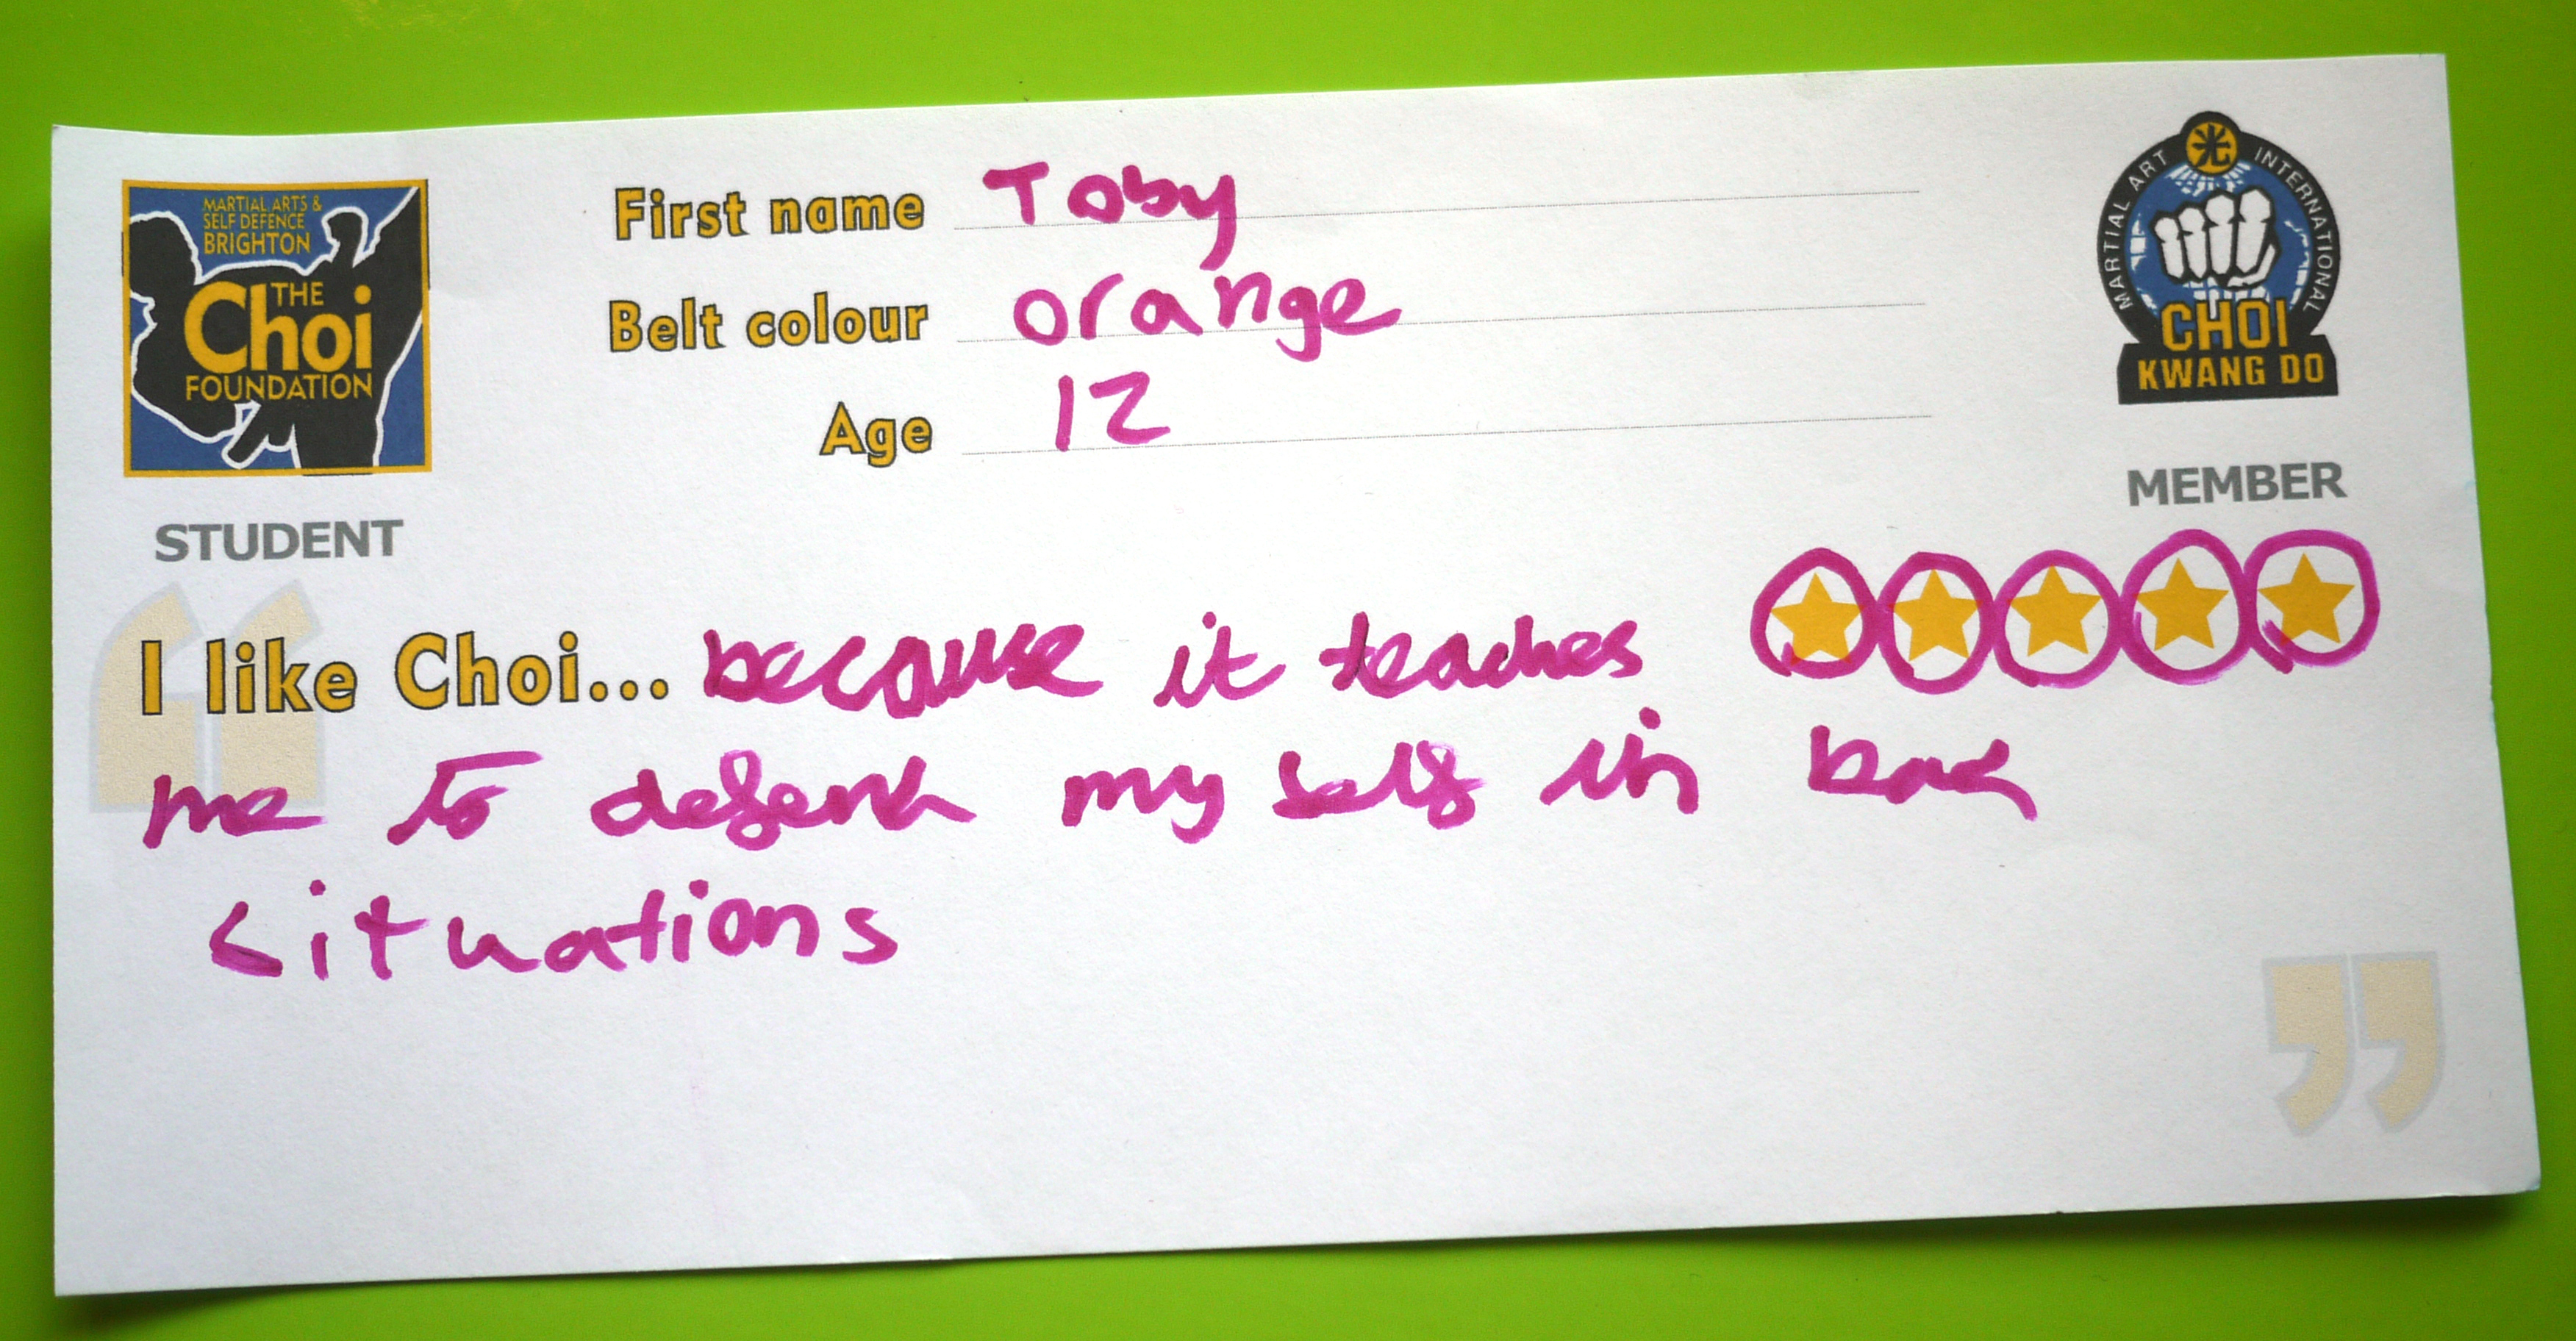 MARTIAL ARTS &
SELF DEFENCE
BRIGHTON
THE
Choi
FOUNDATION
STUDENT
First name Toby
Belt colour orange
Age 12
MARTIAL ART INTERNATIONAL
光
CHOI
KWANG DO
MEMBER
I like Choi... because it teaches
me to defend my self in bad
situations